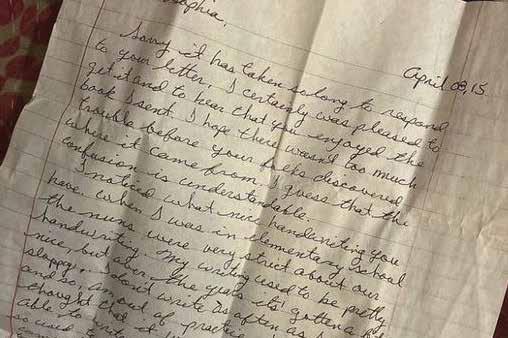 Sophia,
April 08, 15
Sorry it has taken so long to respond
to your letter. I certainly was pleased to
get it and to hear that you enjoyed the
book I sent. I hope there wasn't too much
trouble before your folks discovered
where it came from. I guess that the
confusion is understandable.
I noticed what nice handwriting you
have. When I was in elementary school
the nuns were very strict about our
handwriting. My writing used to be pretty
nice but over the years its' gotten a bit
sloppy. I don't write as often as I
and so, am out of practice
thought that it
able to write
so used to